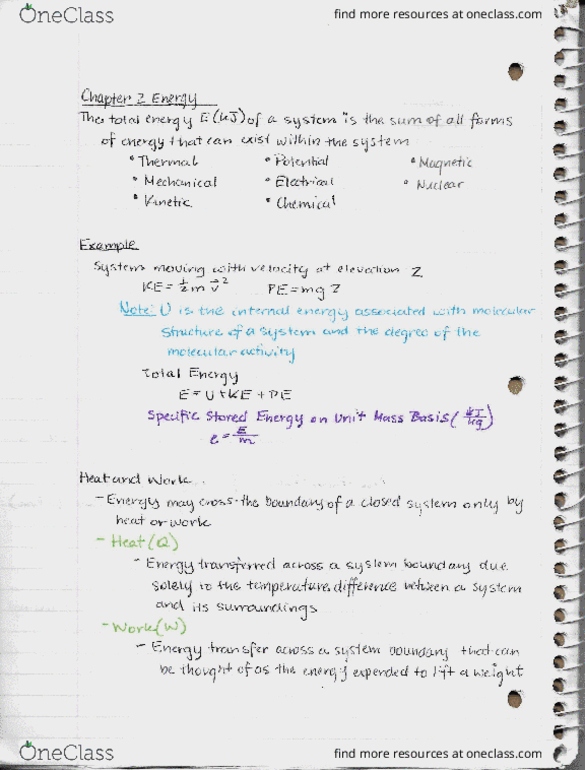 OneClass find more resources at oneclass.com
Chapter 2 Energy
The total energy E(kJ) of a system is the sum of all forms
of energy that can exist within the system
• Thermal • Potential • Magnetic
• Mechanical • Electrical • Nuclear
• Kinetic • Chemical
Example
System moving with velocity at elevation Z
KE = 1/2 m v⃗² PE = mgZ
Note: U is the internal energy associated with molecular
structure of a system and the degree of the
molecular activity
Total Energy
E = U + KE + PE
Specific Stored Energy on Unit Mass Basis (kJ/kg)
e = E/m
Heat and Work
- Energy may cross the boundary of a closed system only by
heat or work
- Heat (Q)
- Energy transferred across a system boundary due
solely to the temperature difference between a system
and its surroundings
- Work (W)
- Energy transfer across a system boundary that can
be thought of as the energy expended to lift a weight
OneClass find more resources at oneclass.com